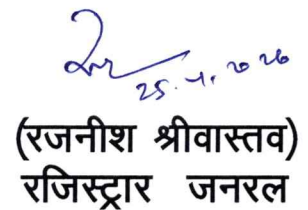 25.4.2026
(रजनीश श्रीवास्तव)
रजिस्ट्रार जनरल